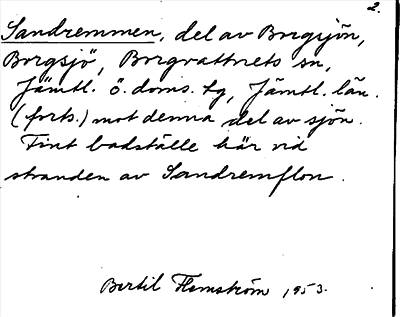 2.
Sandremmen, del av Borgsjön,
Borgsjö, Borgvattnets sn,
Jämtl. ö. doms. tg, Jämtl. län.
(forts.) mot denna del av sjön.
Fint badställe här vid
stranden av Sandremflon.
Bertil Flemström 1953.